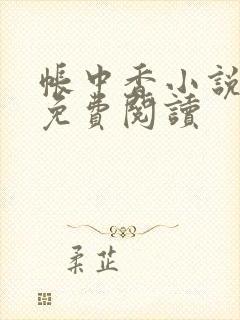 帳中香小說
免費閱讀
柔芷